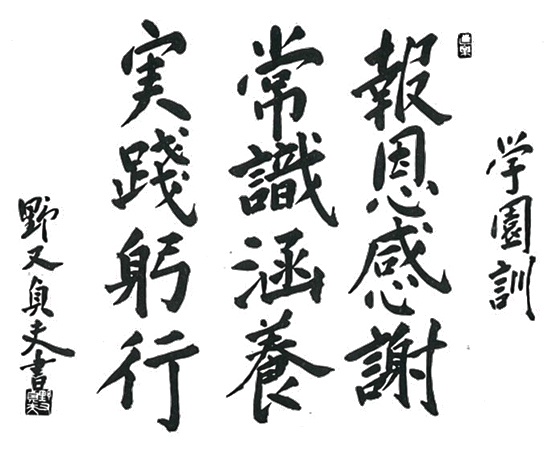 学園訓
報恩感謝
常識涵養
実踐躬行
野又貞夫書